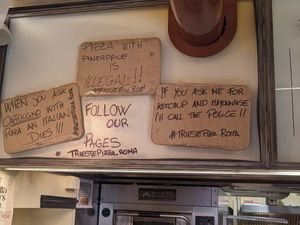 PIZZA WITH
PINEAPPLE
IS
ILLEGAL!!!
#TRIESTEPIZZA.ROMA
WHEN YOU ASK
OREGANO WITH
PIZZA AN ITALIAN
DIES!!!
#TRIESTEPIZZA.ROMA
FOLLOW
OUR
PAGES
#TRIESTEPIZZA.ROMA
IF YOU ASK ME FOR
KETCHUP AND MAYONNAISE
I'LL CALL THE POLICE!!
#TRIESTEPIZZA.ROMA